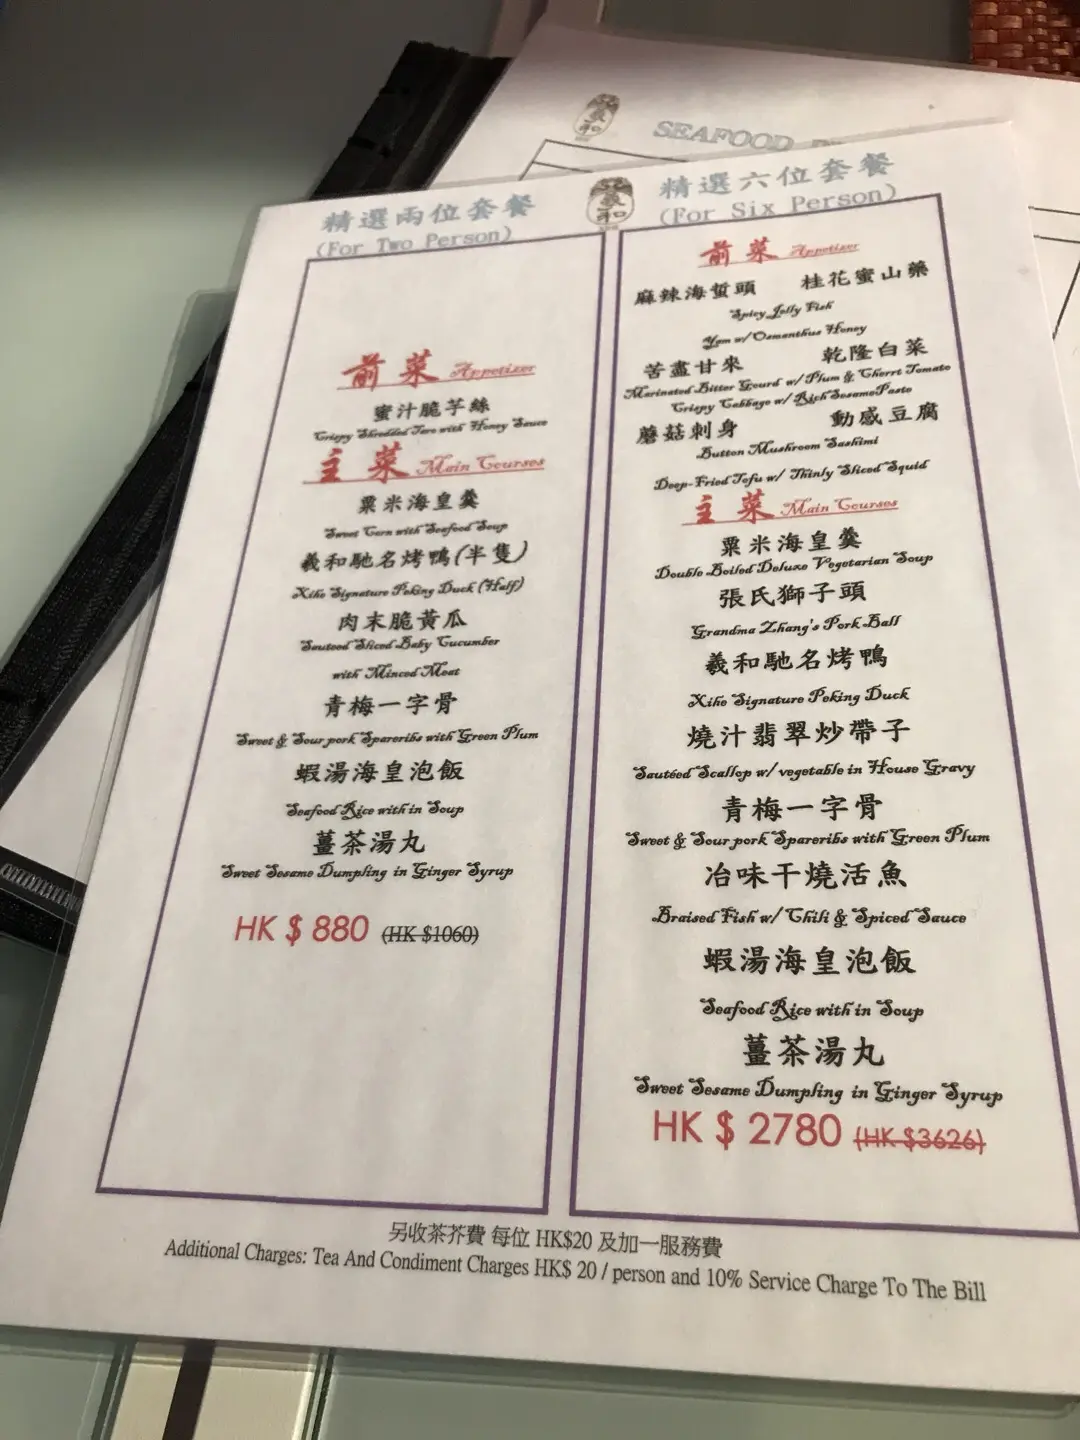 SEAFOOD
精選兩位套餐
(For Two Person)
前菜 Appetizer
蜜汁脆芋絲
Crispy Shredded Taro with Honey Sauce
主菜 Main Courses
粟米海皇羹
Sweet Corn with Seafood Soup
羲和馳名烤鴨(半隻)
Xihe Signature Peking Duck (Half)
肉末脆黃瓜
Sauteed Sliced Baby Cucumber
with Minced Meat
青梅一字骨
Sweet & Sour pork Spareribs with Green Plum
蝦湯海皇泡飯
Seafood Rice with in Soup
薑茶湯丸
Sweet Sesame Dumpling in Ginger Syrup
HK $ 880 (HK $1060)
羲和
精選六位套餐
(For Six Person)
前菜 Appetizer
麻辣海蜇頭 桂花蜜山藥
Spicy Jelly Fish
Yam w/ Osmanthus Honey
苦盡甘來 乾隆白菜
Marinated Bitter Gourd w/ Plum & Cherrt Tomato
Crispy Cabbage w/ Rich Sesame Paste
蘑菇刺身 動感豆腐
Button Mushroom Sashimi
Deep-Fried Tofu w/ Thinly Sliced Squid
主菜 Main Courses
粟米海皇羹
Double Boiled Deluxe Vegetarian Soup
張氏獅子頭
Grandma Zhang's Pork Ball
羲和馳名烤鴨
Xihe Signature Peking Duck
燒汁翡翠炒帶子
Sautéed Scallop w/ vegetable in House Gravy
青梅一字骨
Sweet & Sour pork Spareribs with Green Plum
冶味干燒活魚
Braised Fish w/ Chili & Spiced Sauce
蝦湯海皇泡飯
Seafood Rice with in Soup
薑茶湯丸
Sweet Sesame Dumpling in Ginger Syrup
HK $ 2780 (HK $3626)
另收茶芥費 每位 HK$20 及加一服務費
Additional Charges: Tea And Condiment Charges HK$ 20 / person and 10% Service Charge To The Bill